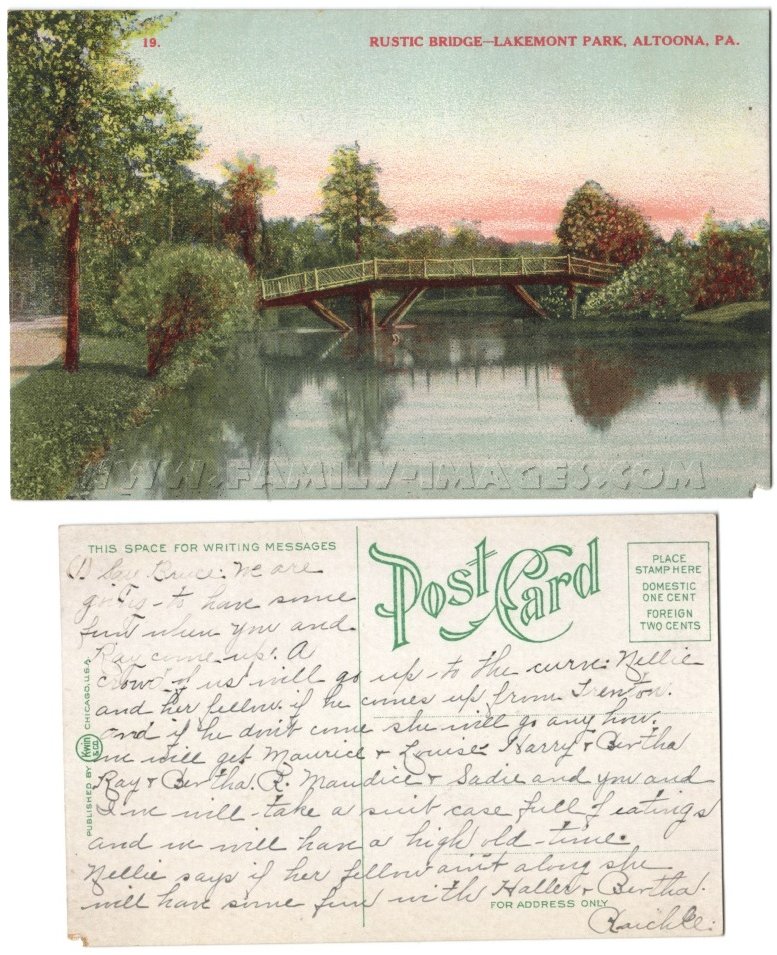 19.
RUSTIC BRIDGE—LAKEMONT PARK, ALTOONA, PA.
WWW.FAMILY-IMAGES.COM
THIS SPACE FOR WRITING MESSAGES
Post Card
PLACE
STAMP HERE
DOMESTIC
ONE CENT
FOREIGN
TWO CENTS
PUBLISHED BY Kwin & Co. CHICAGO, U.S.A.
(1) Say Bruce: We are
going to have some
fun when you and
Ray come up. A
crowd of us will go up to the curve: Nellie
and her fellow if he comes up from Trenton.
and if he don't come she will go any how.
we will get Maurice & Louise Harry & Bertha
Ray & Bertha R. Maudice & Sadie and you and
I. we will take a suit case full of eatings
and we will have a high old time.
Nellie says if her fellow ain't along she
will have some fun with Haller & Bertha
FOR ADDRESS ONLY